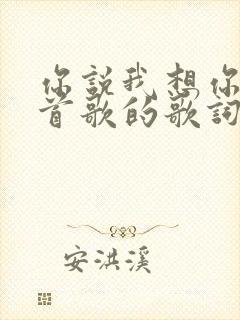 你説我想你
首歌的歌詞
安洪溪